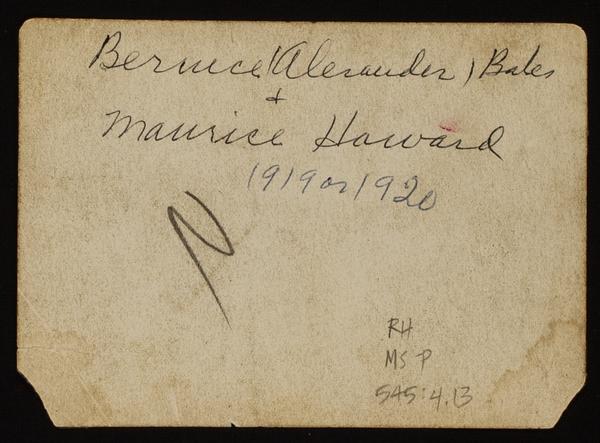 Bernice (Alexander) Bates
+
Maurice Howard
1919 or 1920
N
RH
MS P
545:4.13